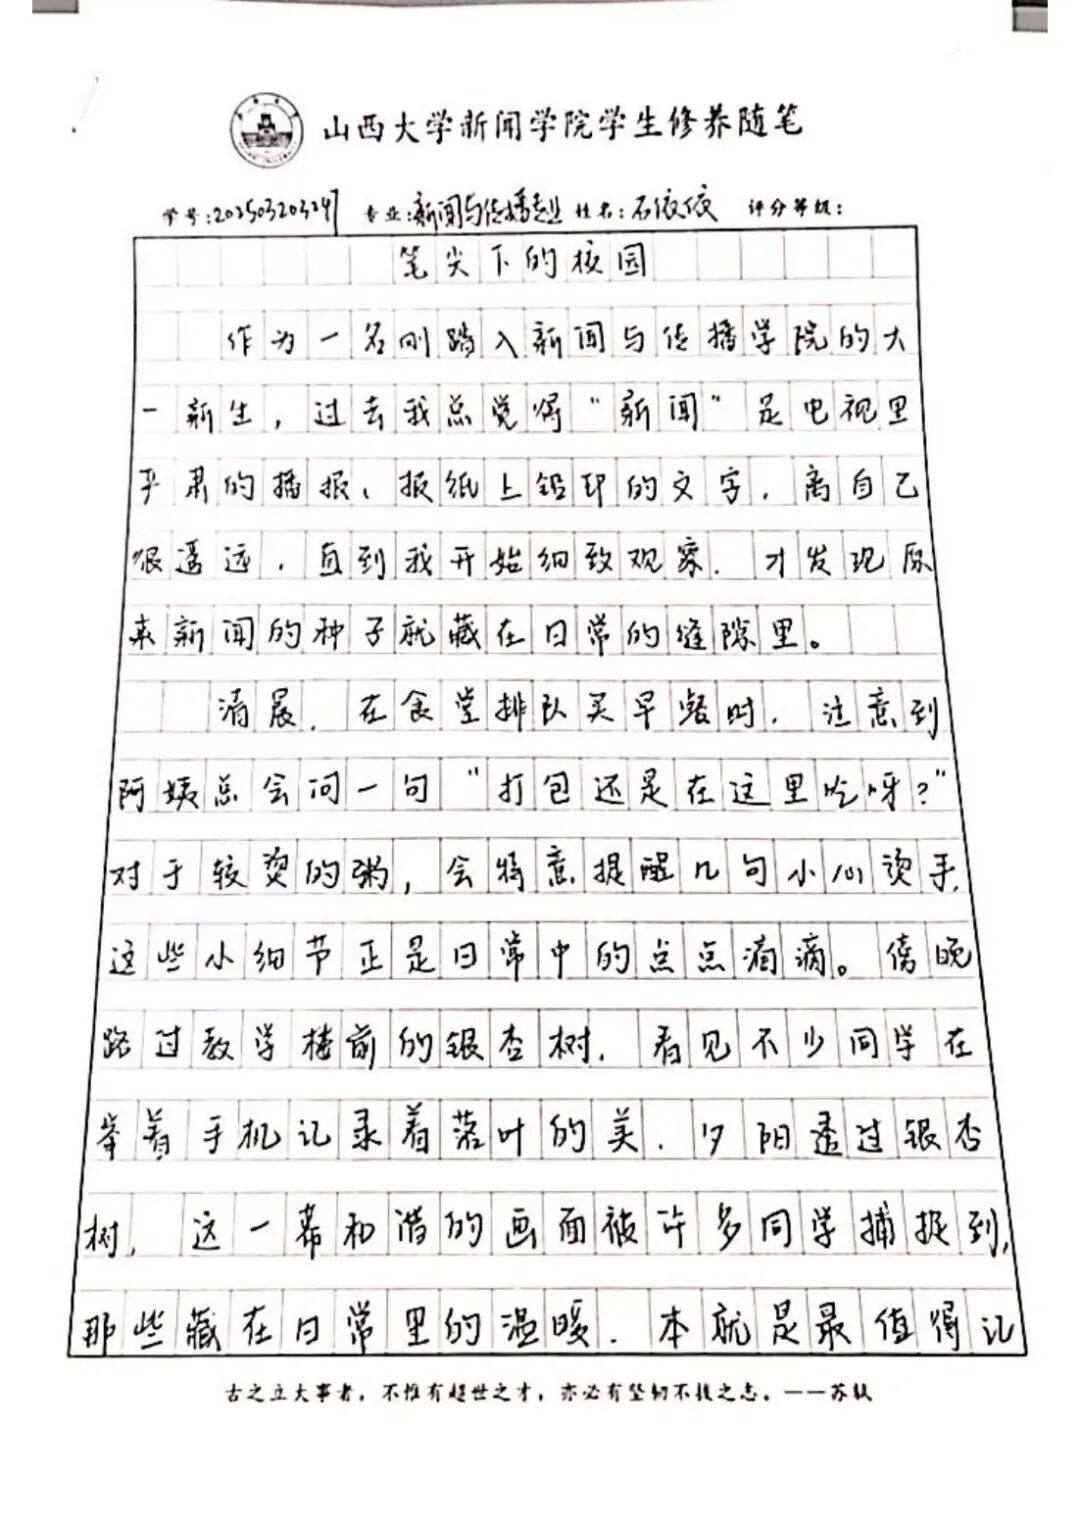 山西大学新闻学院学生修养随笔
学号:202503203247 专业:新闻与传播专业 姓名:石依依 评分等级:
笔尖下的校园
作为一名刚踏入新闻与传播学院的大
一新生，过去我总觉得“新闻”是电视里
严肃的播报、报纸上铅印的文字，离自己
很遥远，直到我开始细致观察，才发现原
来新闻的种子就藏在日常的缝隙里。
清晨，在食堂排队买早餐时，注意到
阿姨总会问一句“打包还是在这里吃呀？”
对于较烫的粥，会特意提醒几句小心烫手，
这些小细节正是日常中的点点滴滴。傍晚
路过教学楼前的银杏树，看见不少同学在
举着手机记录着落叶的美，夕阳透过银杏
树，这一幕和谐的画面被许多同学捕捉到，
那些藏在日常里的温暖，本就是最值得记
古之立大事者，不惟有超世之才，亦必有坚韧不拔之志。——苏轼